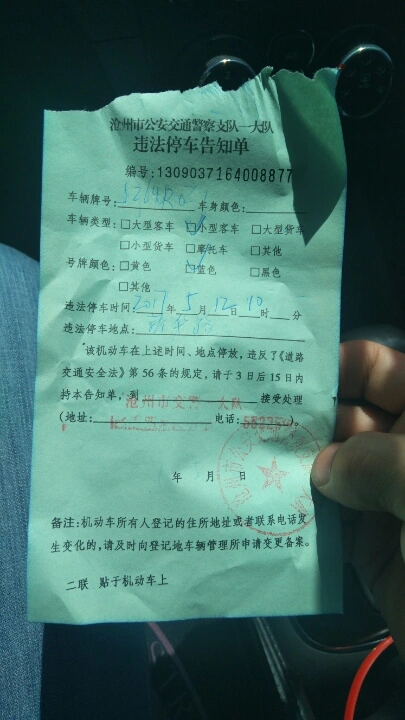 沧州市公安交通警察支队一大队
违法停车告知单
编号:1309037164008877
车辆牌号: 车身颜色:
车辆类型:□大型客车 □小型客车 □大型货车
□小型货车 □摩托车 □其他
号牌颜色:□黄色 □蓝色 □黑色
□其他
违法停车时间:2017年5月12日10时 分
违法停车地点:
该机动车在上述时间、地点停放,违反了《道路
交通安全法》第56条的规定,请于3日后15日内
持本告知单,到沧州市交警一大队接受处理
(地址: 电话: )。
年 月 日
备注:机动车所有人登记的住所地址或者联系电话发
生变化的,请及时向登记地车辆管理所申请变更备案。
二联 贴于机动车上